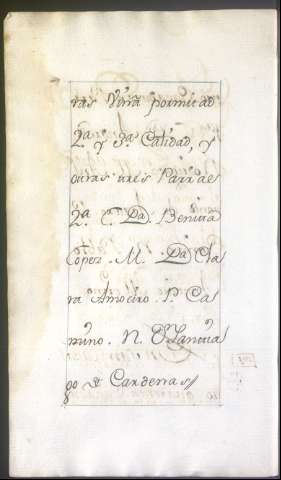 ras Viña por mitad
2ª y 3ª Calidad, y
otras tres Parras
2ª C. Dª Benita
Lopez. M. Dª Cla
ra Amoeiro. P. Ca
mino. N. Dn Santia
go de Cardenas//